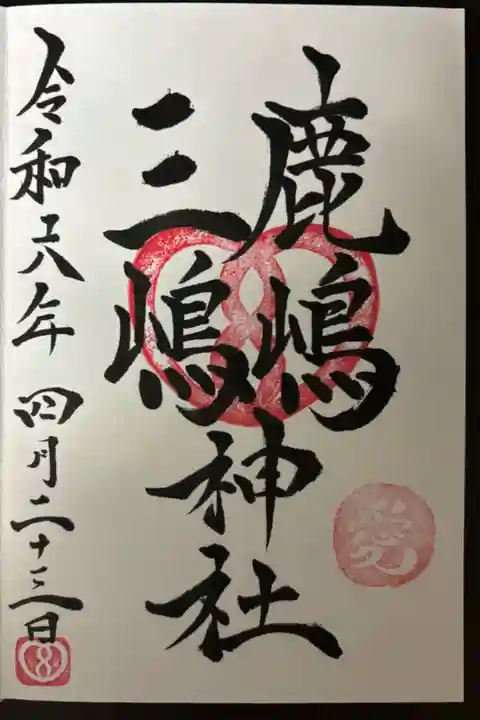 鹿嶋
三嶋
神社
令和六年四月二十三日